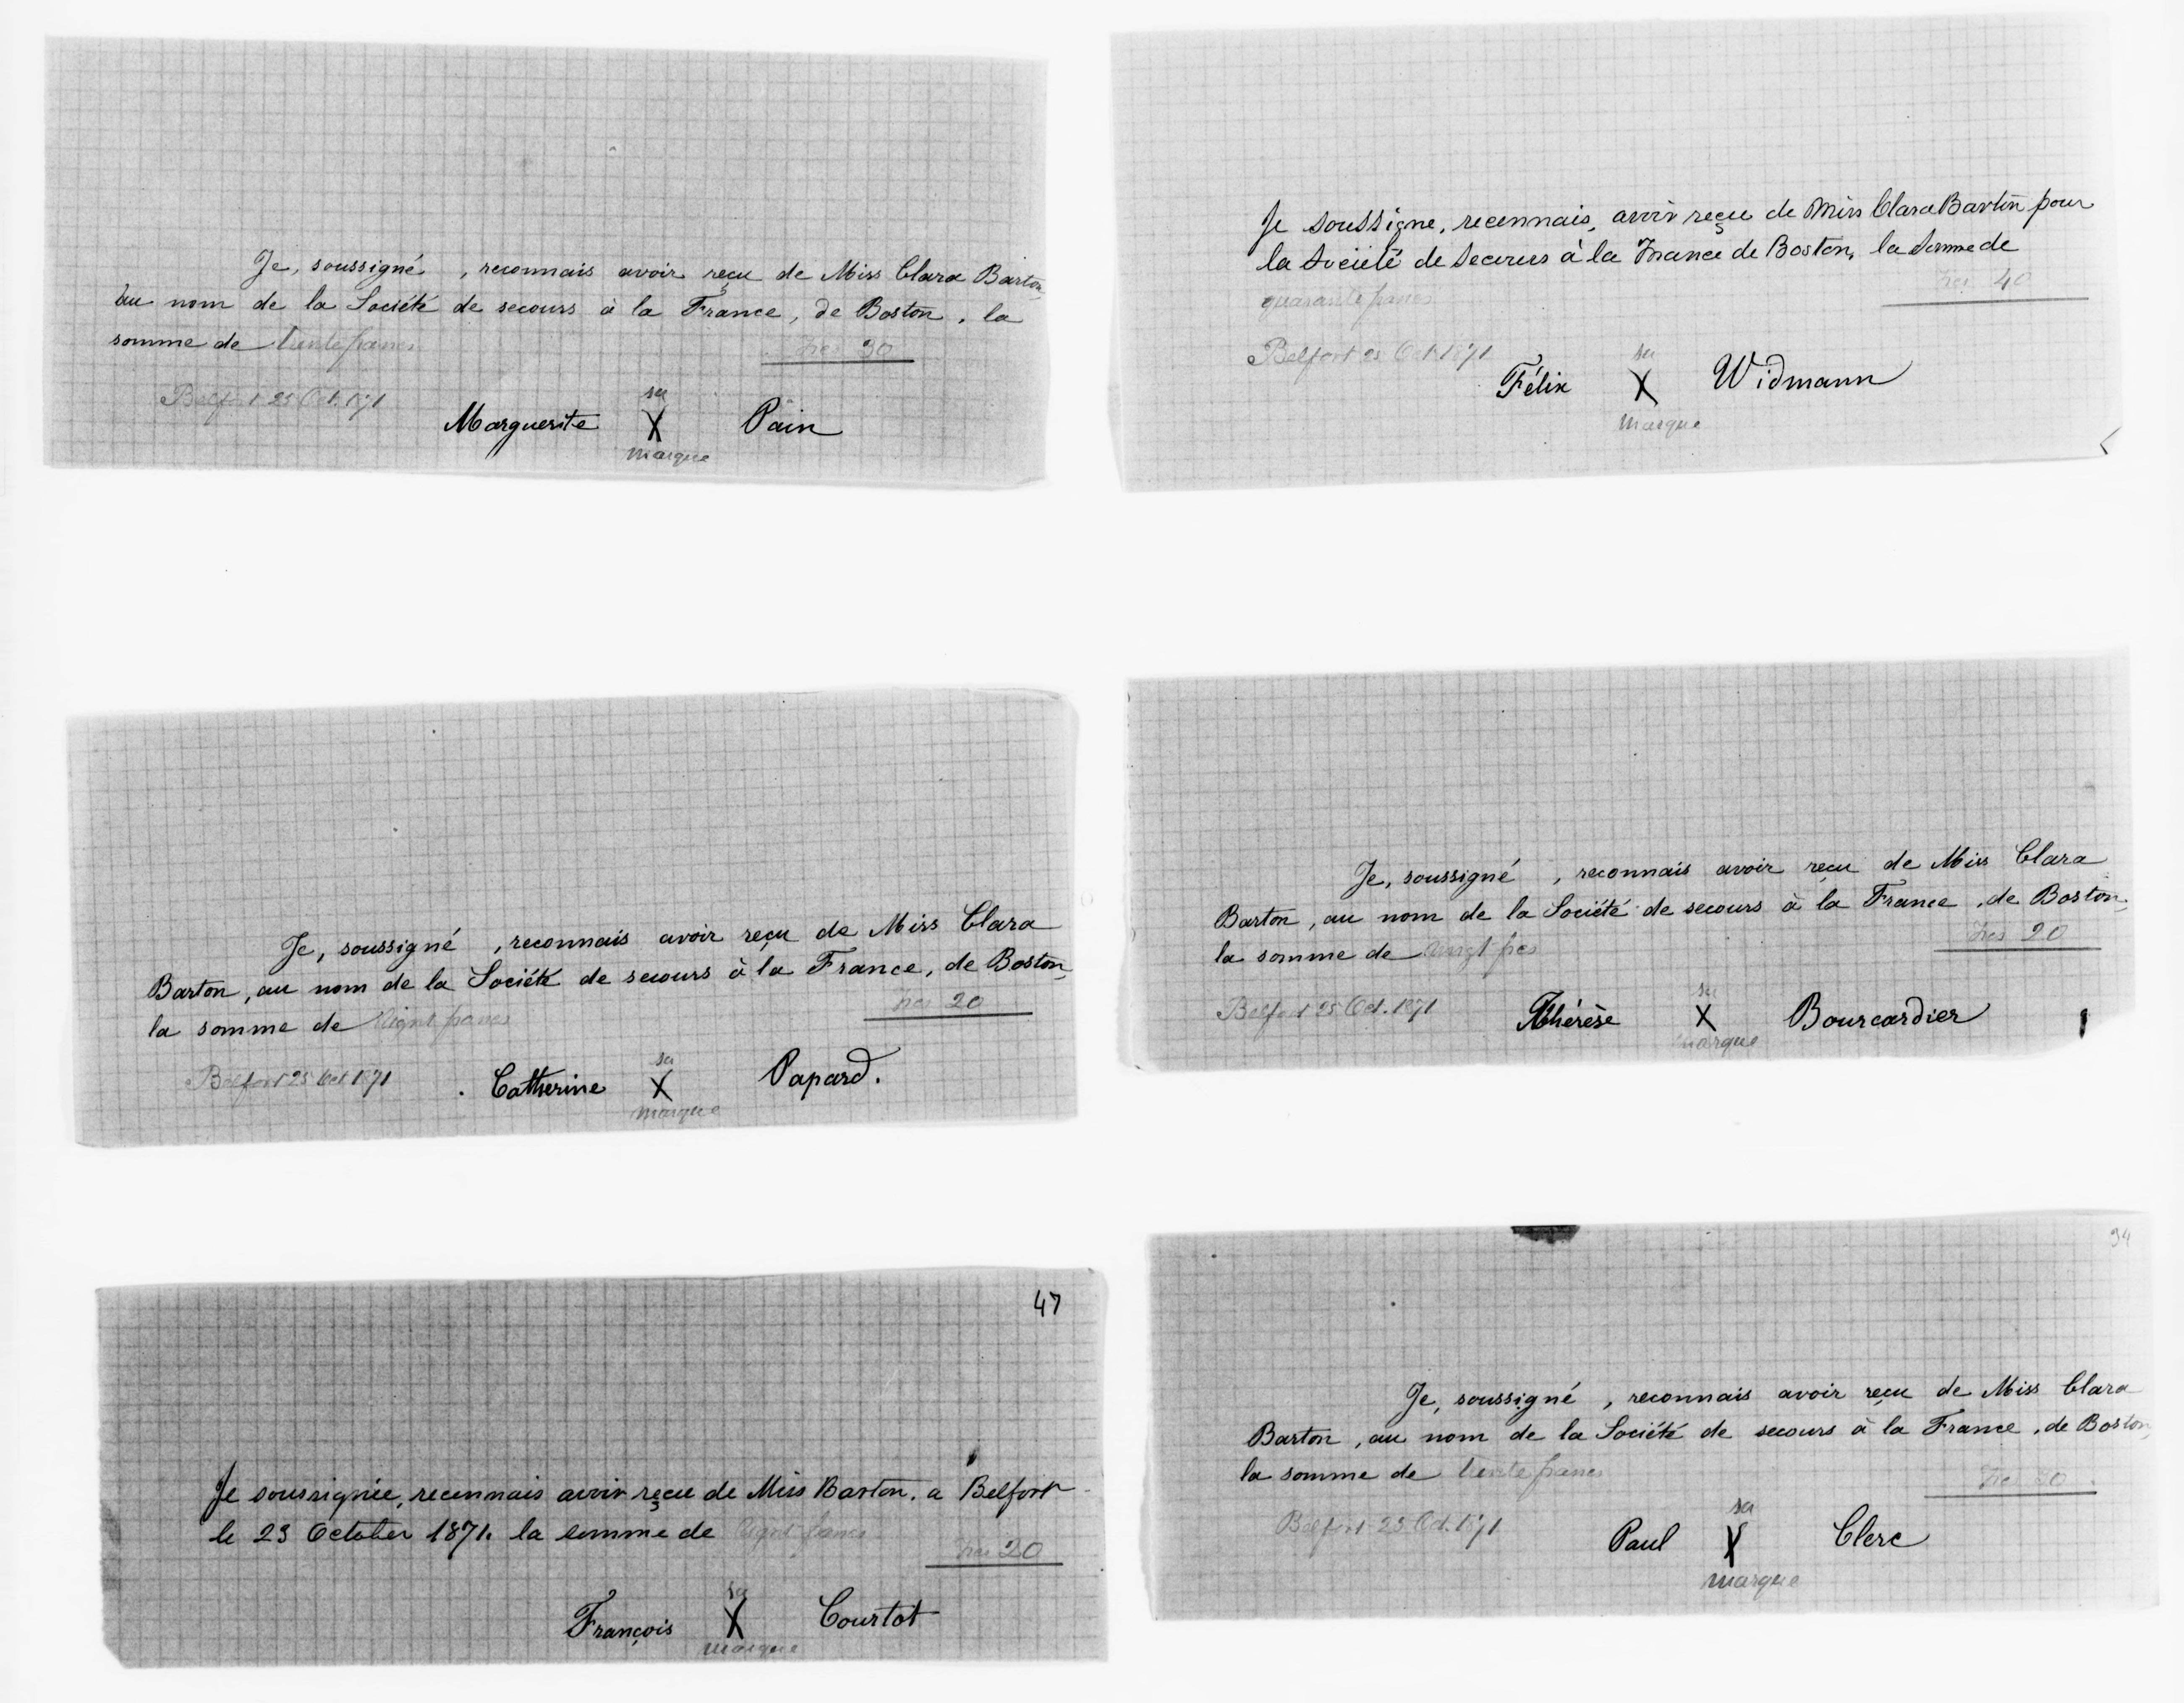 Je, soussigné , reconnais avoir reçu de Miss Clara Barton
au nom de la Société de secours à la France, de Boston, la
somme de trente francs
frcs 30
Belfort 25 Oct. 1871
sa
Marguerite X Pain
marque
Je soussigne, reconnais, avoir reçu de Miss Clara Barton pour
la Société de Secours à la France de Boston, la somme de
quarante francs
frcs 40
Belfort 25 Oct. 1871
sa
Félix X Widmann
marque
Je, soussigné , reconnais avoir reçu de Miss Clara
Barton, au nom de la Société de secours à la France, de Boston,
la somme de Vingt francs
frcs 20
Belfort 25 Oct 1871
sa
Catherine X Papard.
marque
Je, soussigné , reconnais avoir reçu de Miss Clara
Barton, au nom de la Société de secours à la France, de Boston,
la somme de vingt frcs
frcs 20
Belfort 25 Oct. 1871
sa
Thérèse X Bourcardier
marque
47
Je soussignée, reconnais avoir reçu de Miss Barton, a Belfort
le 23 October 1871. la somme de Vingt francs
frcs 20
sa
François X Courtot
marque
94
Je, soussigné , reconnais avoir reçu de Miss Clara
Barton, au nom de la Société de secours à la France, de Boston,
la somme de trente francs
frcs 30
Belfort 25 Oct. 1871
sa
Paul X Clerc
marque